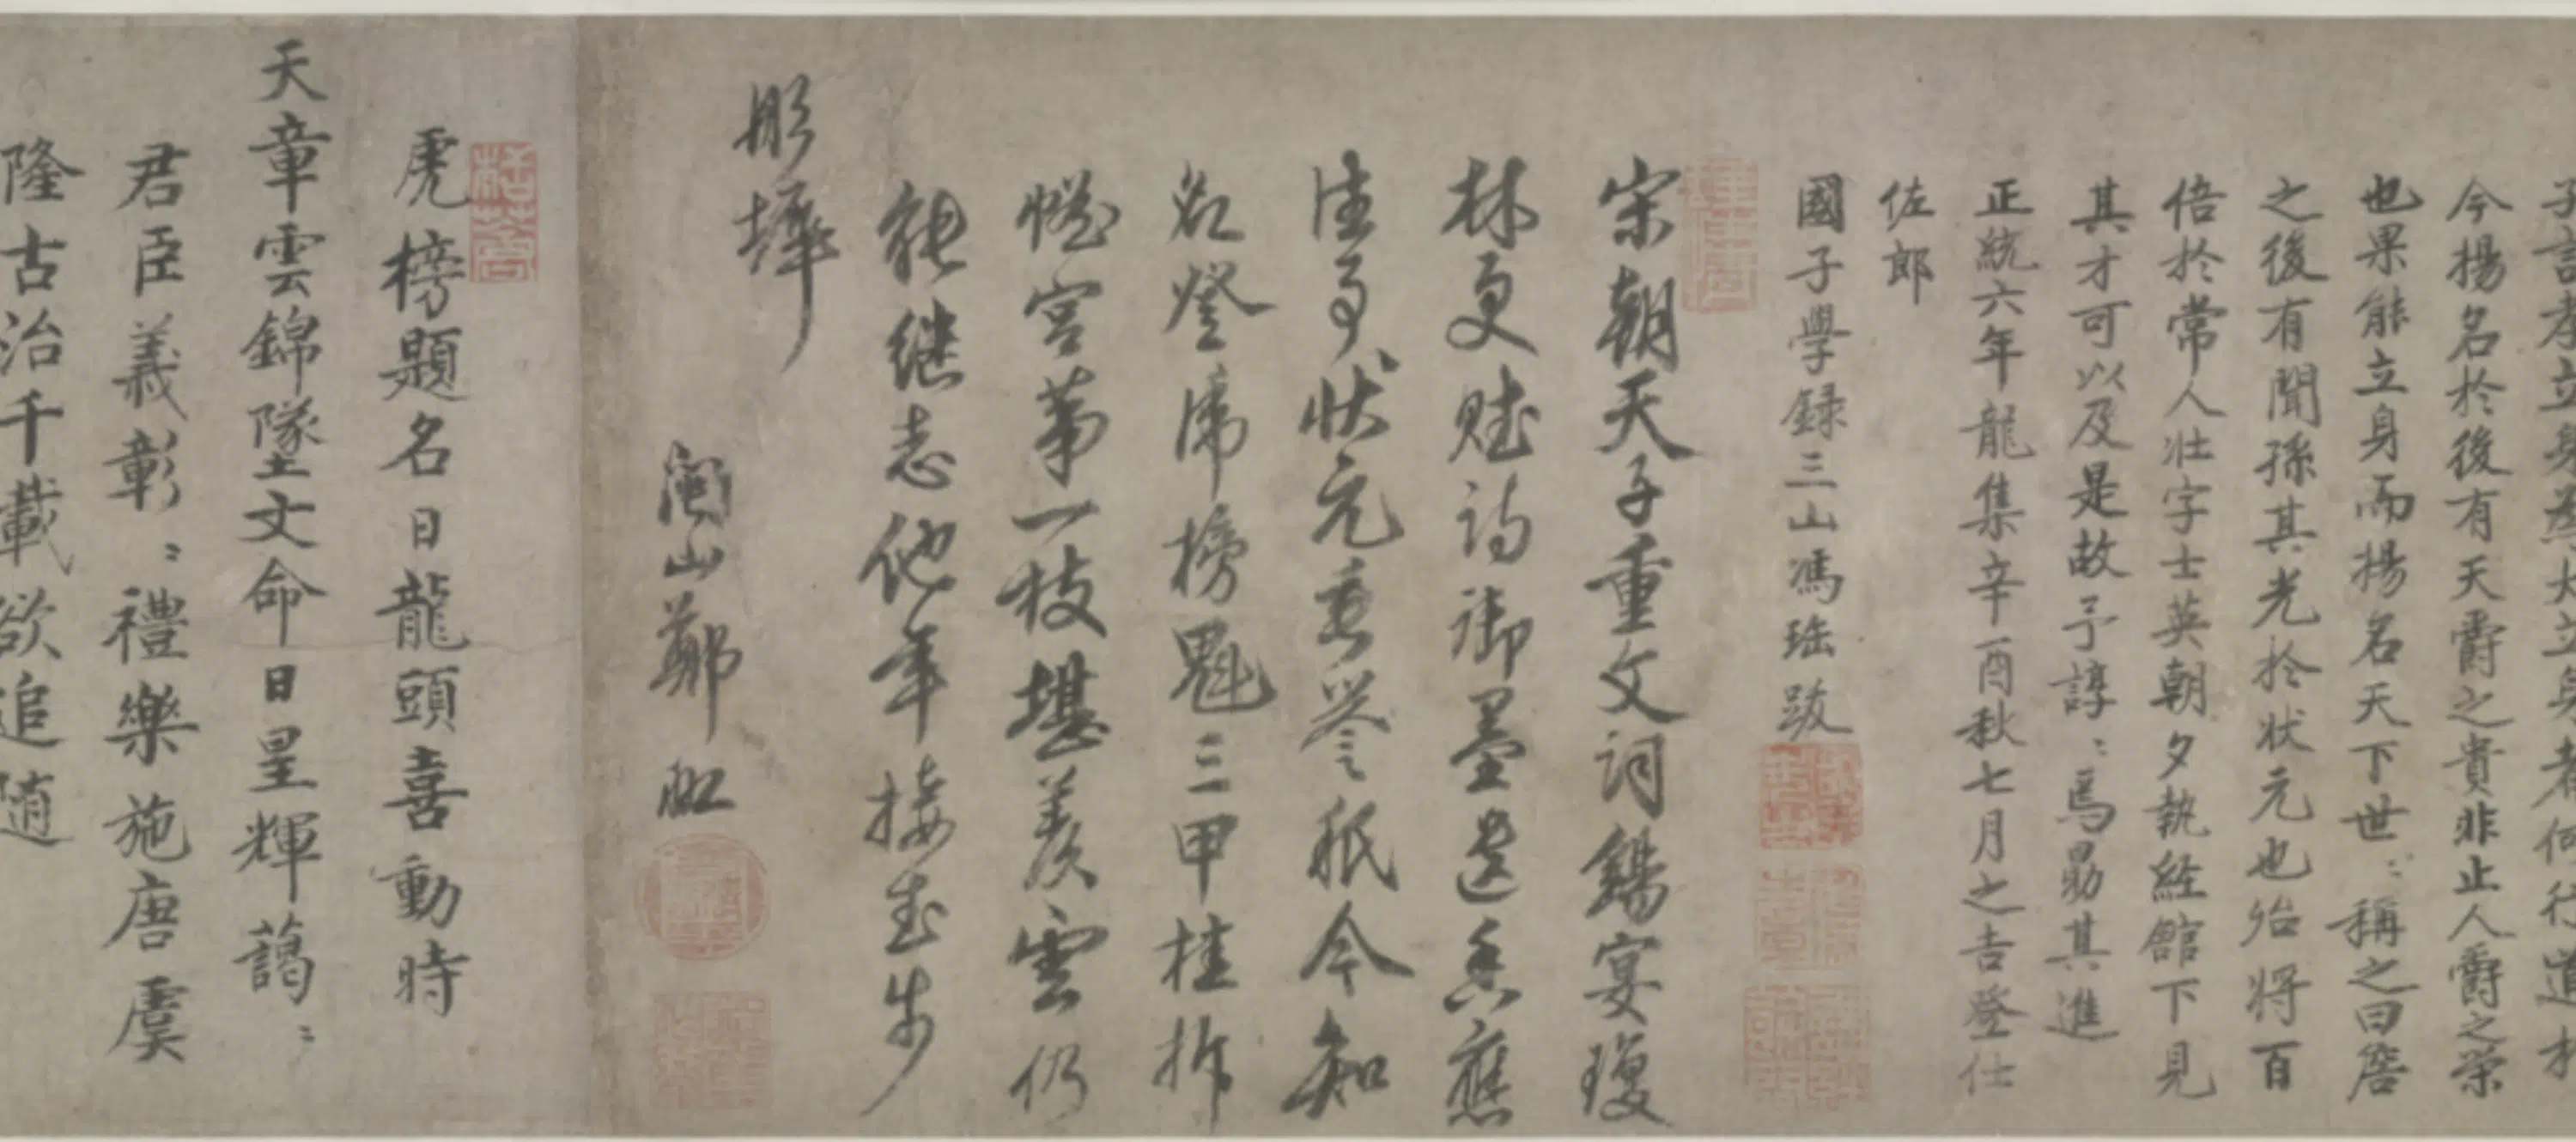 子言孝立身為大立身者何行道
今揚名於後有天爵之貴非止人爵之榮
也果能立身而揚名天下世〻稱之曰啓
之後有聞孫其光於状元也殆将百
倍於常人壮字士英朝夕執経館下見
其才可以及是故予諄〻焉勗其進
正統六年龍集辛酉秋七月之吉登仕
佐郎
國子學録三山馮瑤跋
宋朝天子重文詞錫宴瓊
林更賦詩御墨遺香應
事状元垂譽祇今知
名登虎榜魁三甲桂折
蟾宮第一枝堪羡雲仍
能继志他年接武步
彤墀
閩山鄭
虎榜題名日龍頭喜動時
天章雲錦墜文命日星輝藹〻
君臣義彰〻禮樂施唐虞
隆古治千載欲追隨